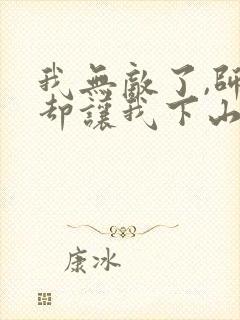 我無敵了,師
却讓我下山
康冰